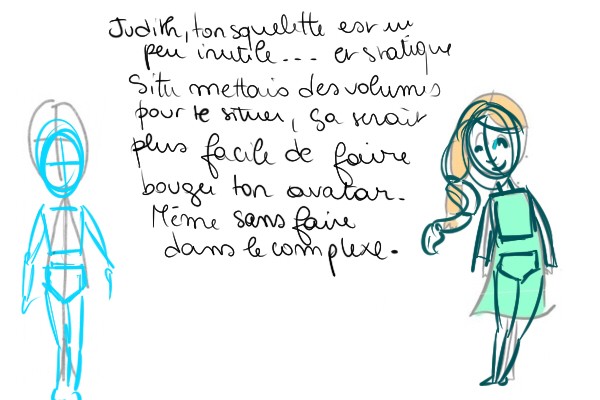 Judith, ton squelette est un
peu inutile... et statique
Si tu mettais des volumes
pour te situer, ça serait
plus facile de faire
bouger ton avatar.
Même sans faire
dans le complexe.